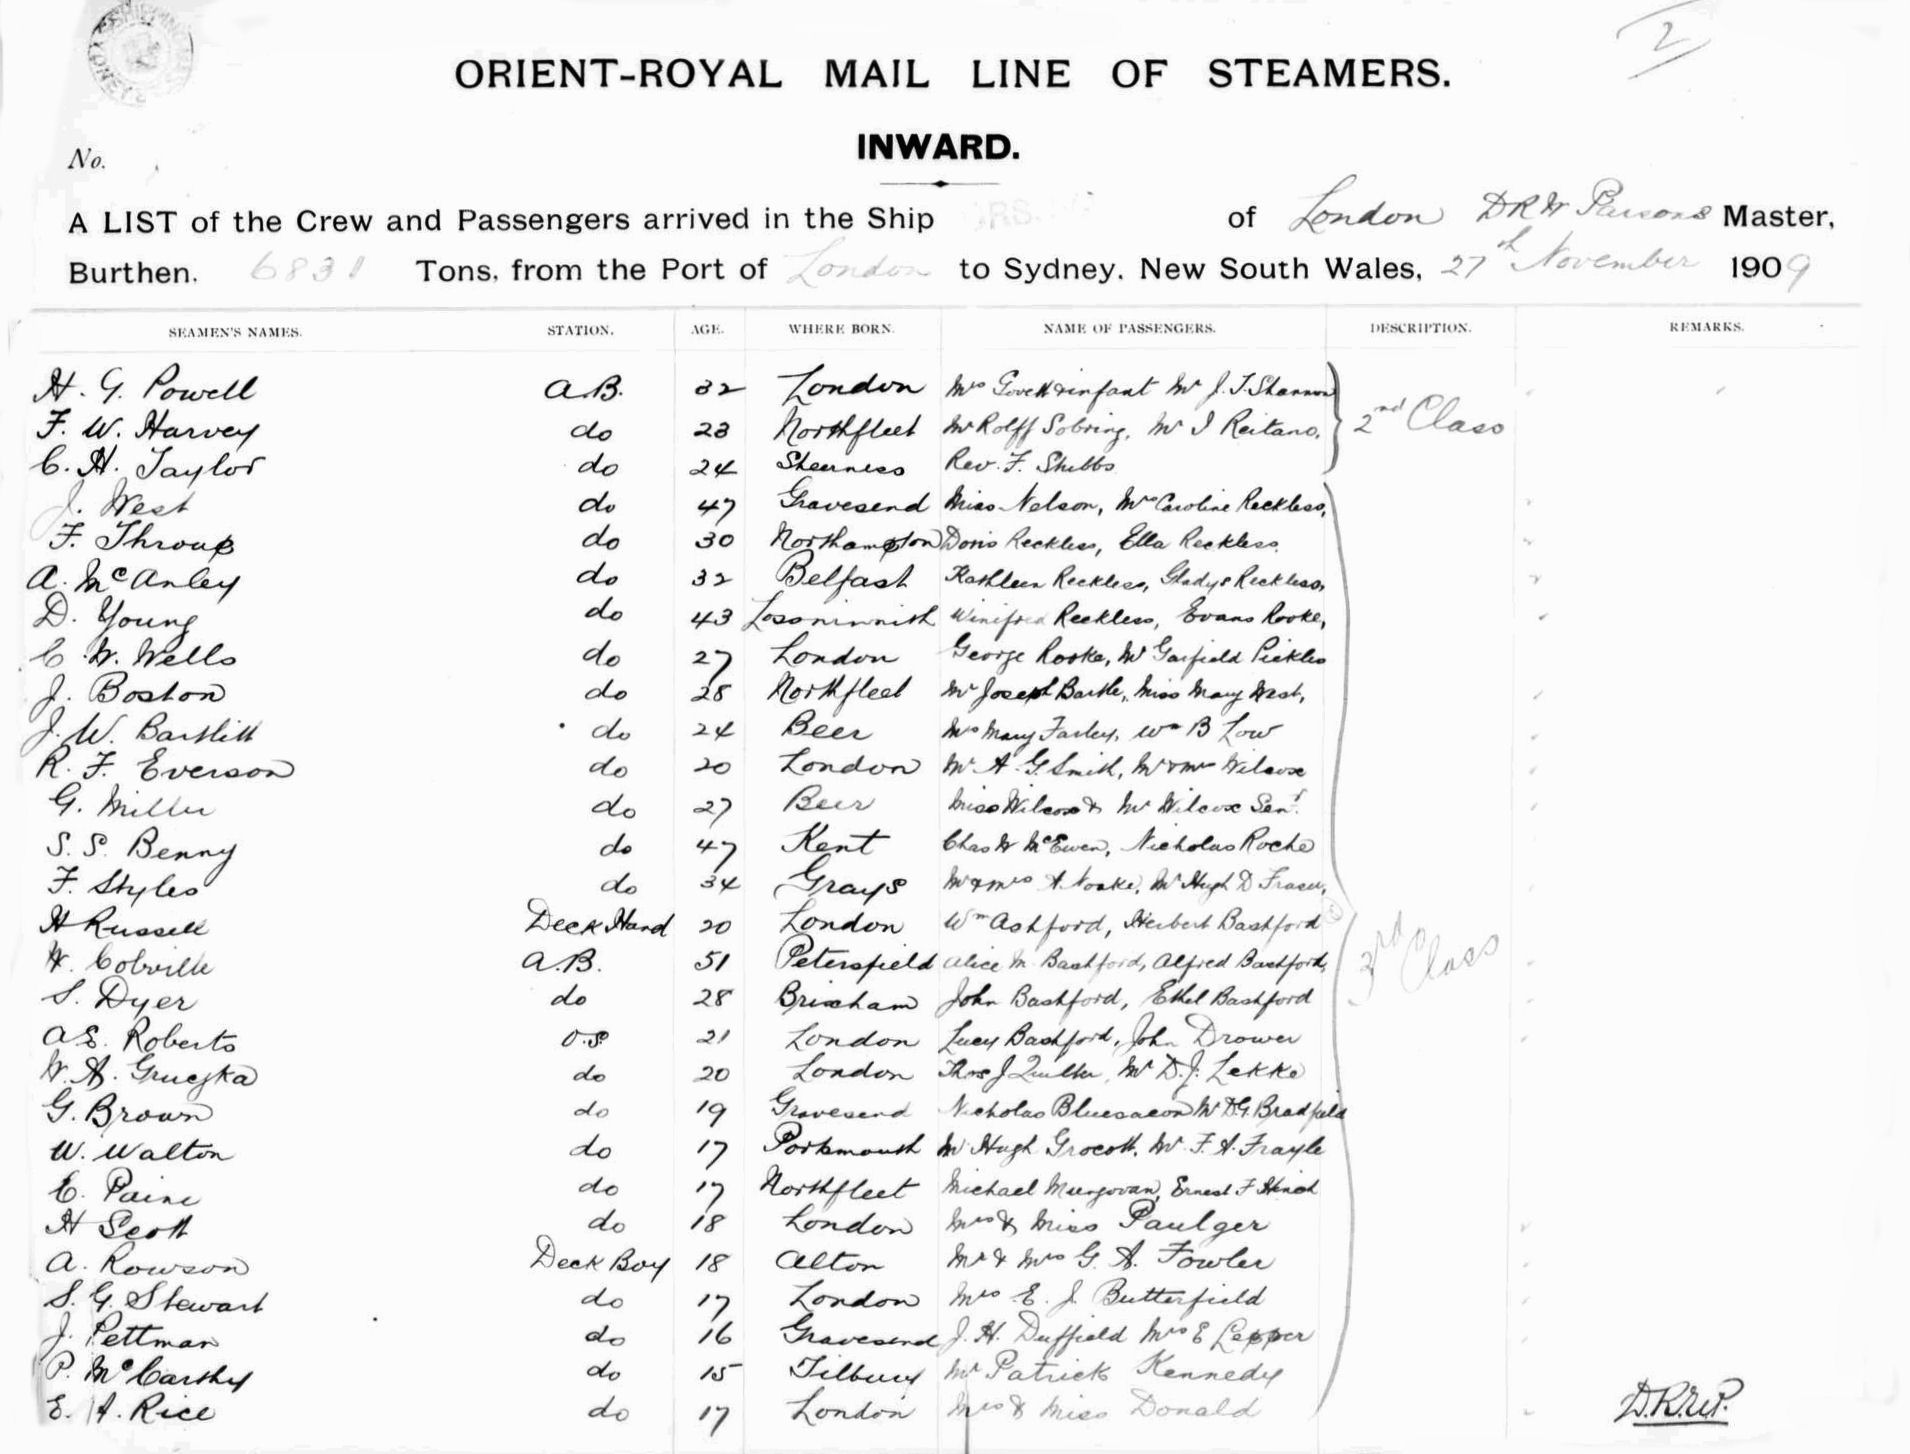 2
ORIENT-ROYAL MAIL LINE OF STEAMERS.
INWARD.
No.
A LIST of the Crew and Passengers arrived in the Ship of London D R W Parsons Master,
Burthen. 6831 Tons, from the Port of London to Sydney. New South Wales, 27th November 1909
SEAMEN'S NAMES. STATION. AGE. WHERE BORN. NAME OF PASSENGERS. DESCRIPTION. REMARKS.
H. G. Powell A.B. 32 London Mrs Govett & infant Mr J. T. Shannon
F. W. Harvey do 23 Northfleet Mr Rolff Sobring, Mr I Reitano, 2nd Class
C. H. Taylor do 24 Sheerness Rev. F. Stubbs
J. West do 47 Gravesend Miss Nelson, Mrs Caroline Reckless,
F. Throup do 30 Northampton Doris Reckless, Ella Reckless,
A. McAnley do 32 Belfast Kathleen Reckless, Gladys Reckless,
D. Young do 43 Winifred Reckless, Evans Rooke,
C. W. Wells do 27 London George Rooke, Mr Garfield Pickles
J. Boston do 28 Northfleet Mr Joseph Bartle, Miss Mary West,
J. W. Bartlitt do 24 Beer Mrs Mary Farley, Wm B Low
R. F. Everson do 20 London Mr A. G. Smith, Mr & Mrs Wilcox
G. Miller do 27 Beer Miss Wilcox & Mr Wilcox Senr.
S. S. Benny do 47 Kent Chas W McEwen, Nicholas Roche
F. Styles do 34 Grays Mr & Mrs A. Noake, Mr Hugh D Fraser,
H Russell Deck Hand 20 London Wm Ashford, Herbert Bashford
W. Colville A.B. 51 Petersfield Alice M Bashford, Alfred Bashford, 3rd Class
S. Dyer do 28 Brixham John Bashford, Ethel Bashford
A E. Roberts O.S 21 London Lucy Bashford, John Drower
W. A. Gruczka do 20 London Thos J Quilter, Mr D. J. Lekke
G. Brown do 19 Gravesend Nicholas Mr D G. Bradfield
W. Walton do 17 Portsmouth Mr Hugh Grocott, Mr F. A. Frayle
E. Paine do 17 Northfleet Michael Mungovan, Ernest F Hinch
H Scott do 18 London Mrs & Miss Paulger
A. Rowson Deck Boy 18 Alton Mr & Mrs G. A. Fowler
S. G. Stewart do 17 London Mrs E. J. Butterfield
J. Pettman do 16 Gravesend J. H. Duffield Mrs E Lepper
P. McCarthy do 15 Tilbury Mr Patrick Kennedy
E. A. Rice do 17 London Mrs & Miss Donald
D.R.W.P.